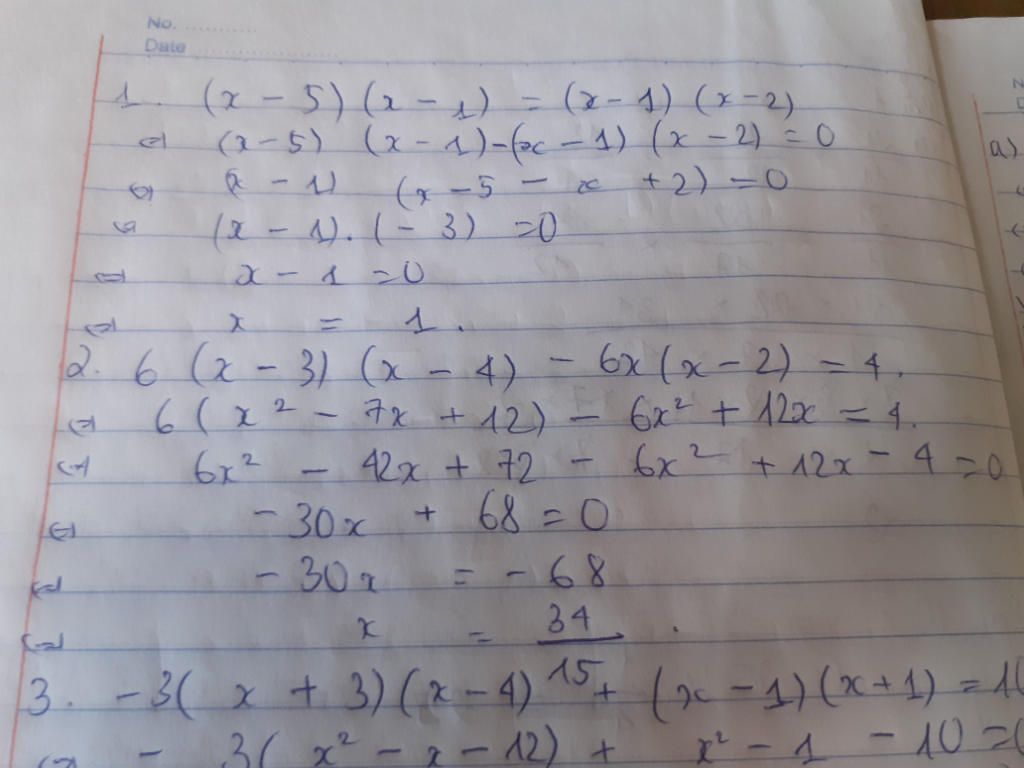 No. ............
Date ........................
1. (x - 5) (x - 1) = (x - 1) (x - 2)
⇔ (x - 5) (x - 1) - (x - 1) (x - 2) = 0
⇔ (x - 1) (x - 5 - x + 2) = 0
⇔ (x - 1). (- 3) = 0
⇔ x - 1 = 0
⇔ x = 1.
2. 6 (x - 3) (x - 4) - 6x (x - 2) = 4.
⇔ 6 ( x² - 7x + 12) - 6x² + 12x = 4.
⇔ 6x² - 42x + 72 - 6x² + 12x - 4 = 0
⇔ - 30x + 68 = 0
⇔ - 30x = - 68
⇔ x = 34/15.
3. - 3( x + 3) (x - 4) + (x - 1) (x + 1) = 10
⇔ - 3( x² - x - 12) + x² - 1 - 10 = 0
a)